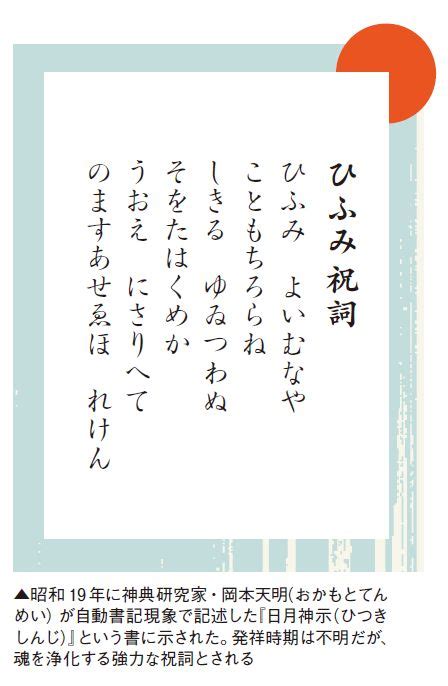 ひふみ祝詞
ひふみ　よいむなや
こともちろらね
しきる　ゆゐつわぬ
そをたはくめか
うおえ　にさりへて
のますあせゑほ　れけん
▲昭和19年に神典研究家・岡本天明(おかもとてん
めい) が自動書記現象で記述した『日月神示(ひつき
しんじ)』という書に示された。発祥時期は不明だが、
魂を浄化する強力な祝詞とされる